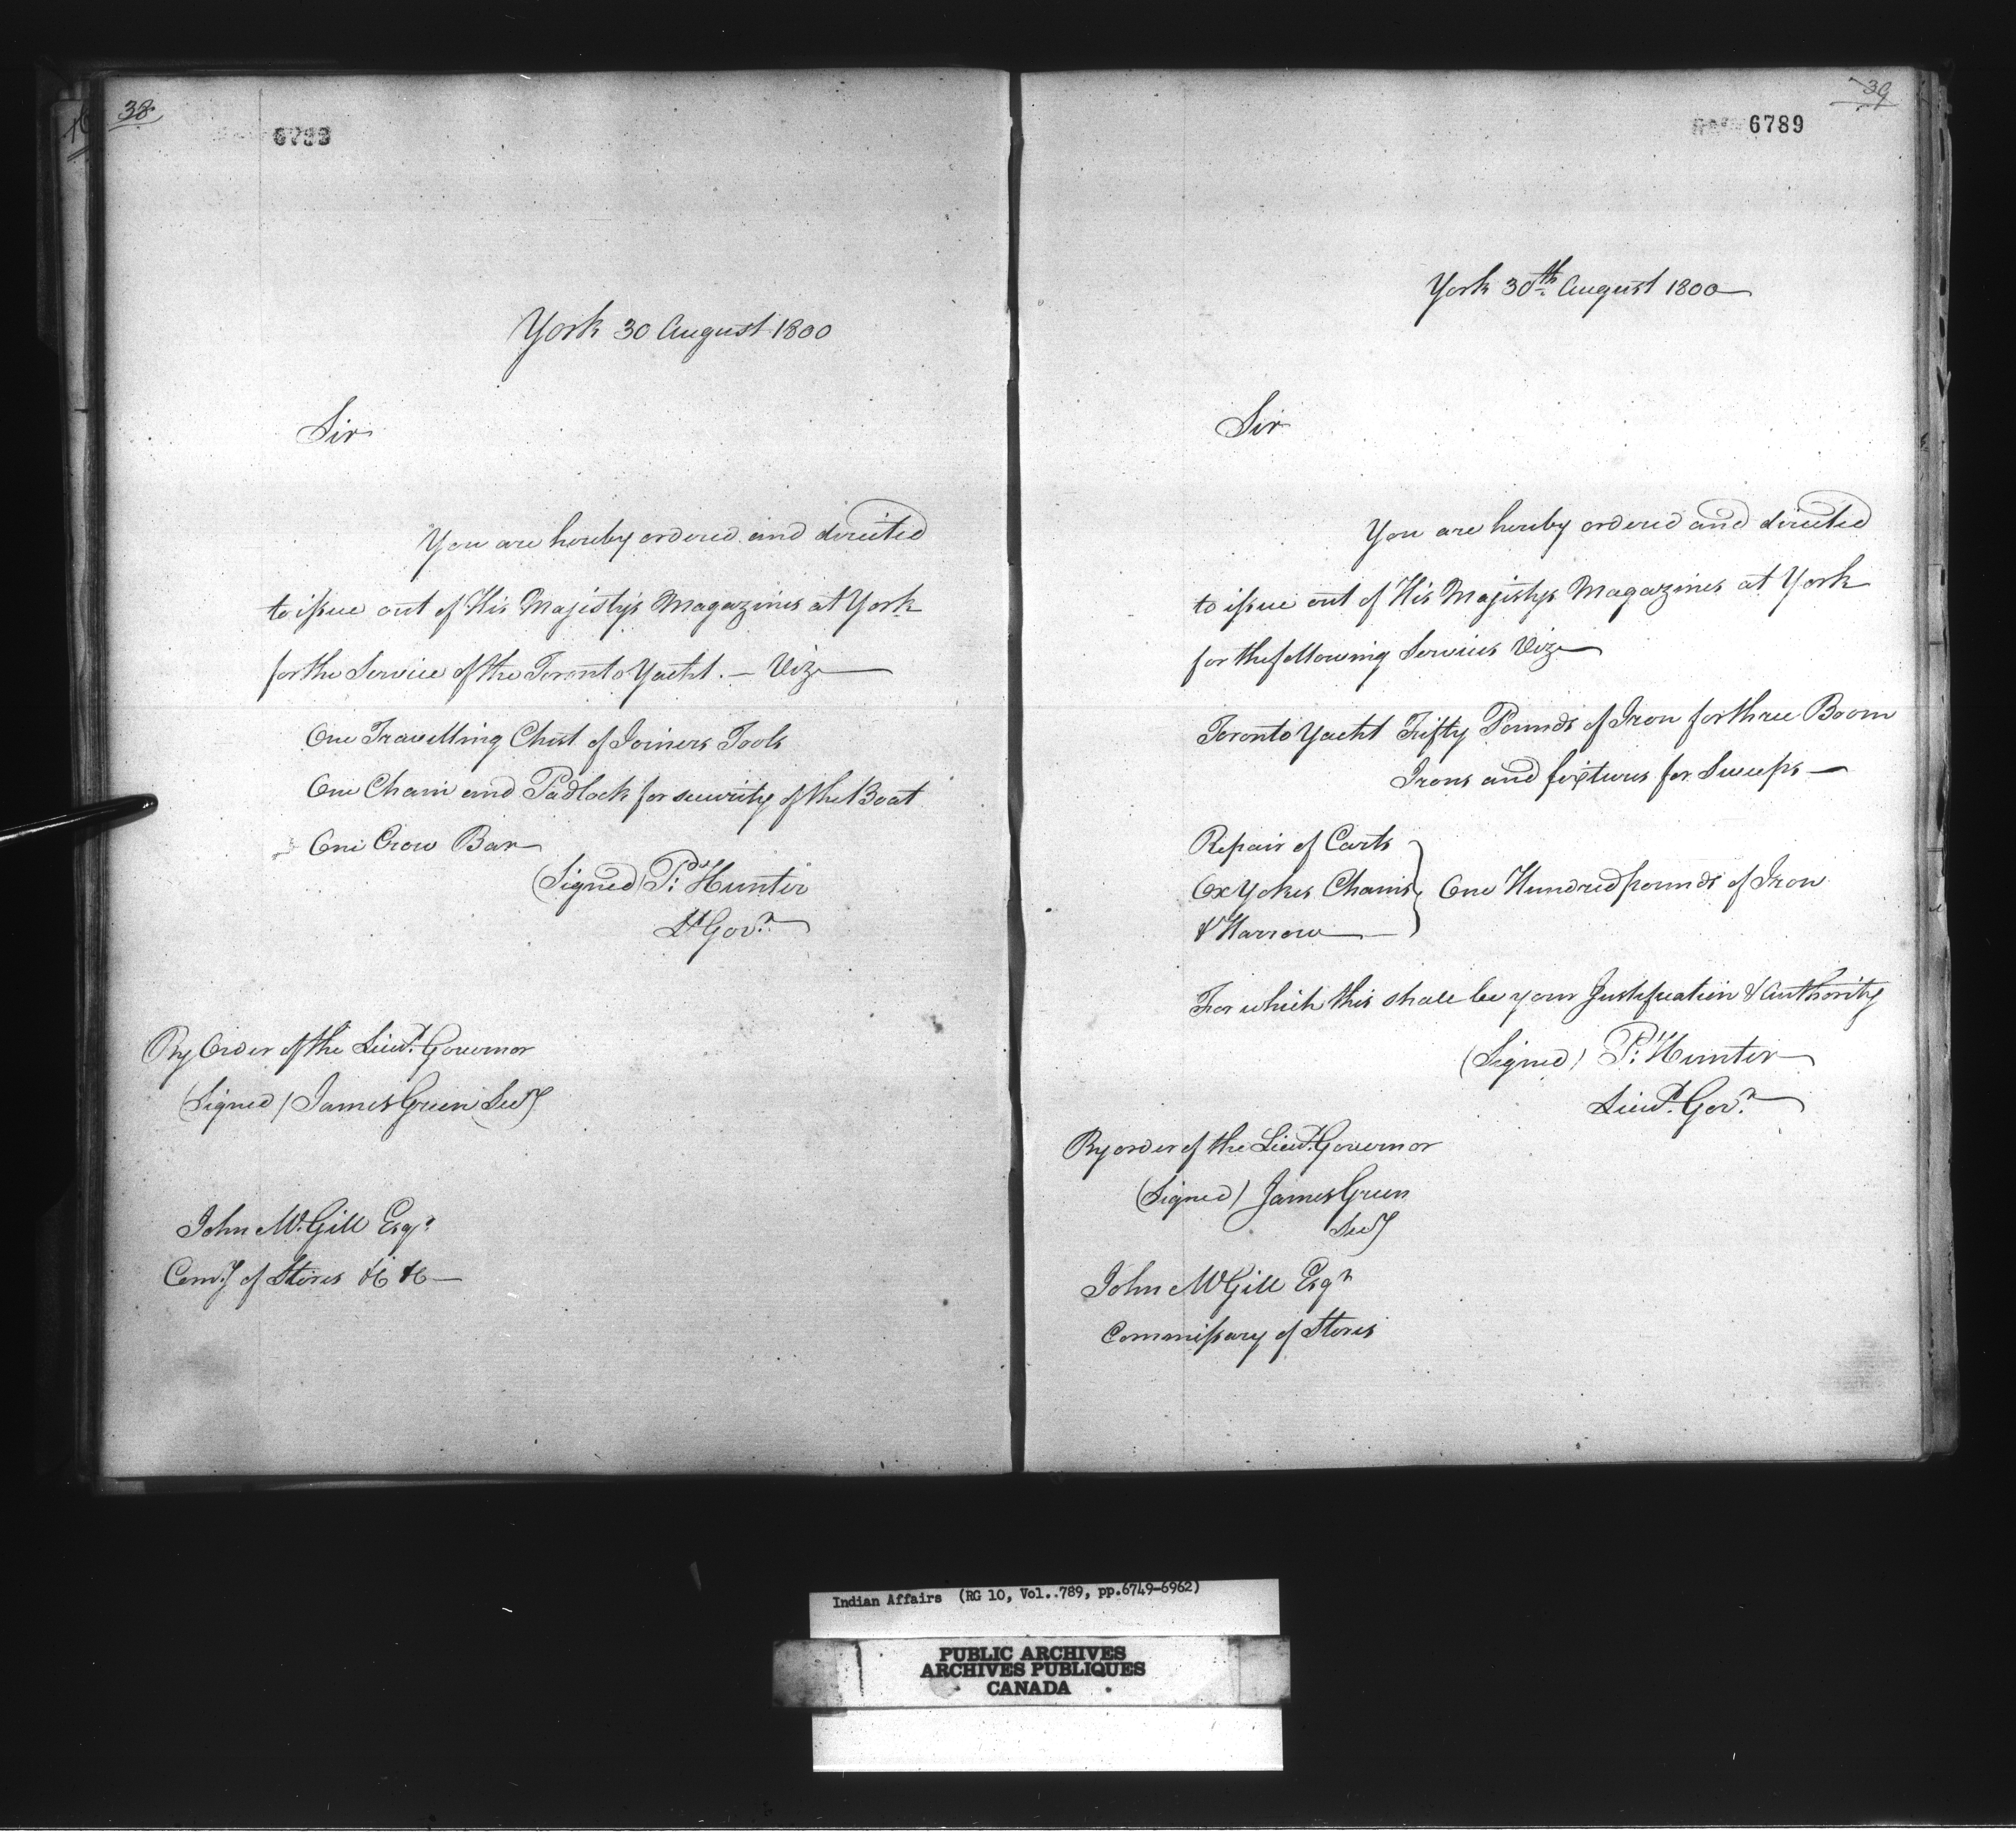 38
York 30 August 1800
Sir
You are hereby ordered and directed
to issue out of His Majesty's Magazines at York
for the Service of the Toronto Yacht. — Vizt
One Travelling Chest of Joiners Tools
One Chain and Padlock for security of the Boat
One Crow Bar
(Signed) P: Hunter
Lt Govr
By Order of the Lieut. Governor
(Signed) James Green Secy
John McGill Esqr
Comy of Stores &c &c —
39
6789
York 30th August 1800
Sir
You are hereby ordered and directed
to issue out of His Majestys Magazines at York
for the following Services Vizt
Toronto Yacht Fifty Pounds of Iron for three Boom
Irons and fixtures for Sweeps —
Repair of Carts
Ox Yokes Chains } One Hundred pounds of Iron
& Harrow
For which this shall be your Justification & Authority
(Signed) P: Hunter
Lieut. Govr
By order of the Lieut. Governor
(Signed) James Green
Secy
John McGill Esqr
Commissary of Stores
Indian Affairs (RG 10, Vol..789, pp.6749-6962)
PUBLIC ARCHIVES
ARCHIVES PUBLIQUES
CANADA